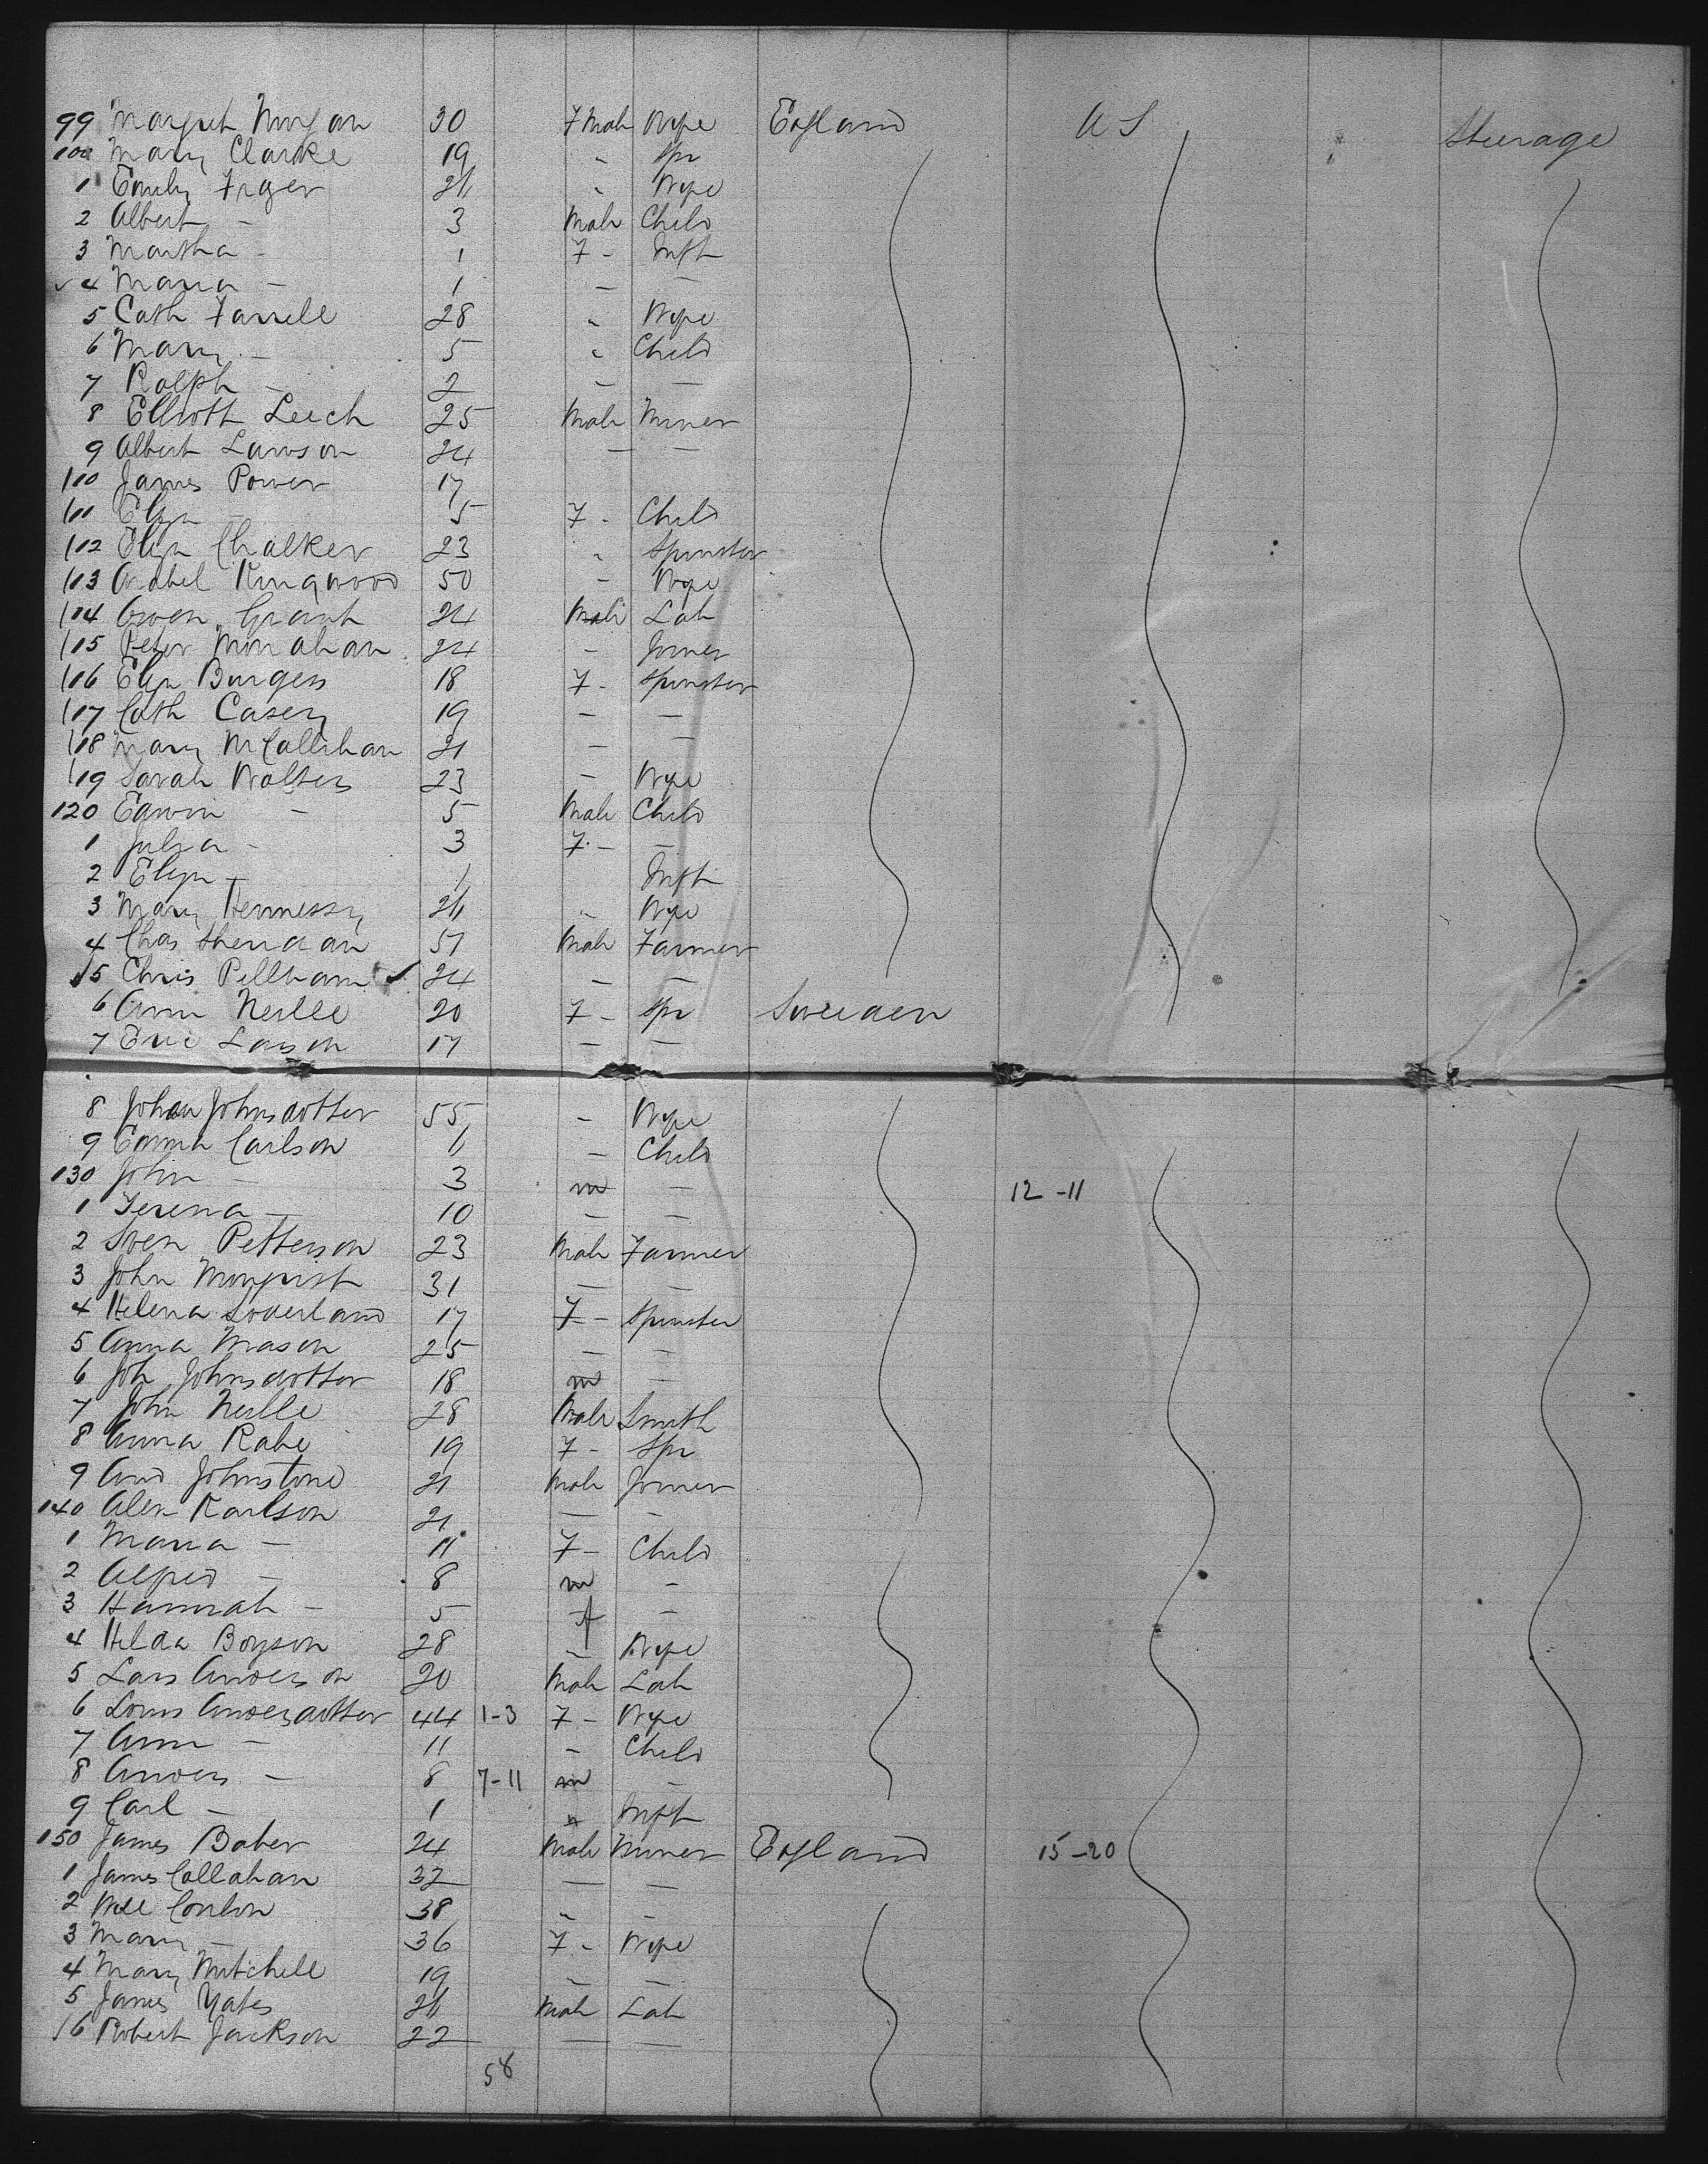 99 Margret Morgan 30 F Male Wife England U S Steerage
100 Mary Clarke 19 " Spr
1 Emily Fryer 21 " Wife
2 Albert - 3 Male Child
3 Martha - 1 F - Inft
4 Maria - 1 - -
5 Cath Farrell 28 " Wife
6 Mary - 5 " Child
7 Ralph - 2 - -
8 Elliott Leech 25 Male Miner
9 Albert Lawson 24 - -
110 James Power 17
111 Eliza - 5 F - Child
112 Eliza Chalker 23 " Spinster
113 Arabel Kingwood 50 - Wife
114 Owen Grant 24 Male Lab
115 Peter Monahan 24 - Joiner
116 Eliza Burgess 18 F - Spinster
117 Cath Casey 19 - -
118 Mary McCallihan 21 - -
119 Sarah Walters 23 - Wife
120 Edwin - 5 Male Child
1 Julia - 3 F - -
2 Eliza - 1 Inft
3 Mary Hennessy 21 " Wife
4 Chas Sheridan 51 Male Farmer
5 Chris Pellham 24 - -
6 Ann Neille 20 F - Spr Sweden
7 Eric Larson 17 - -
8 Johan Johnsdotter 55 - Wife
9 Emma Carlson 11 - Child
130 John - 3 m - 12-11
1 Terena - 10 - -
2 Sven Petterson 23 Male Farmer
3 John Monquist 31 - -
4 Helena Soderland 17 F - Spinster
5 Anna Mason 25 - -
6 Joh Johnsdotter 18 m -
7 John Neille 28 Male Smith
8 Anna Rabe 19 F - Spr
9 And Johnstone 21 Male Joiner
140 Alex Karlson 21 - -
1 Maria - 11 F - Child
2 Alfred - 8 m -
3 Hannah - 5 f -
4 Hilda Boyson 28 " Wife
5 Lars Anderson 20 Male Lab
6 Louis Andersdotter 44 1-3 F - Wife
7 Ann - 11 - Child
8 Anders - 8 7-11 m -
9 Carl - 1 " Inft
150 James Baber 24 Male Miner England 15-20
1 James Callahan 32 - -
2 Will Conlon 38 " -
3 Mary - 36 F - Wife
4 Mary Mitchell 19 - -
5 James Yates 21 Male Lab
6 Robert Jackson 22 - -
58